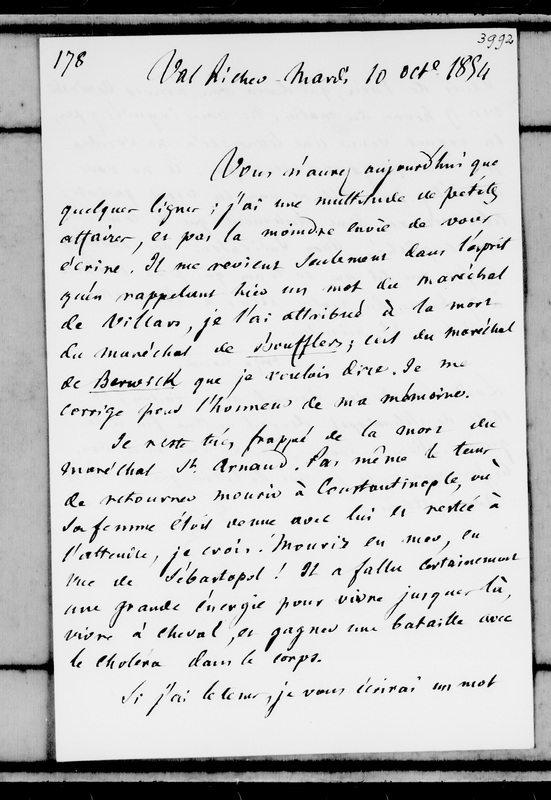 3992
178
Val Richer - Mardi 10 octe 1854
Vous n'aurez aujourd'hui que
quelques lignes ; j'ai une multitude de petites
affaires, et pas la moindre envie de vous
écrire. Il me revient seulement dans l'esprit
qu'en rappelant hier un mot du maréchal
de Villars, je l'ai attribué à la mort
du maréchal de Boufflers ; c'est du maréchal
de Berwick que je voulois dire. Je me
corrige pour l'honneur de ma mémoire.
Je reste très frappé de la mort du
Maréchal St. Arnaud. Pas même le tems
de retourner mourir à Constantinople, où
sa femme étoit venue avec lui et restée à
l'attendre, je crois ! Mourir en mer, en
vue de Sébastopol ! Il a fallu certainement
une grande énergie pour vivre jusques là,
vivre à cheval, et gagner une bataille avec
le choléra dans le corps.
Si j'ai le tems, je vous écrirai un mot